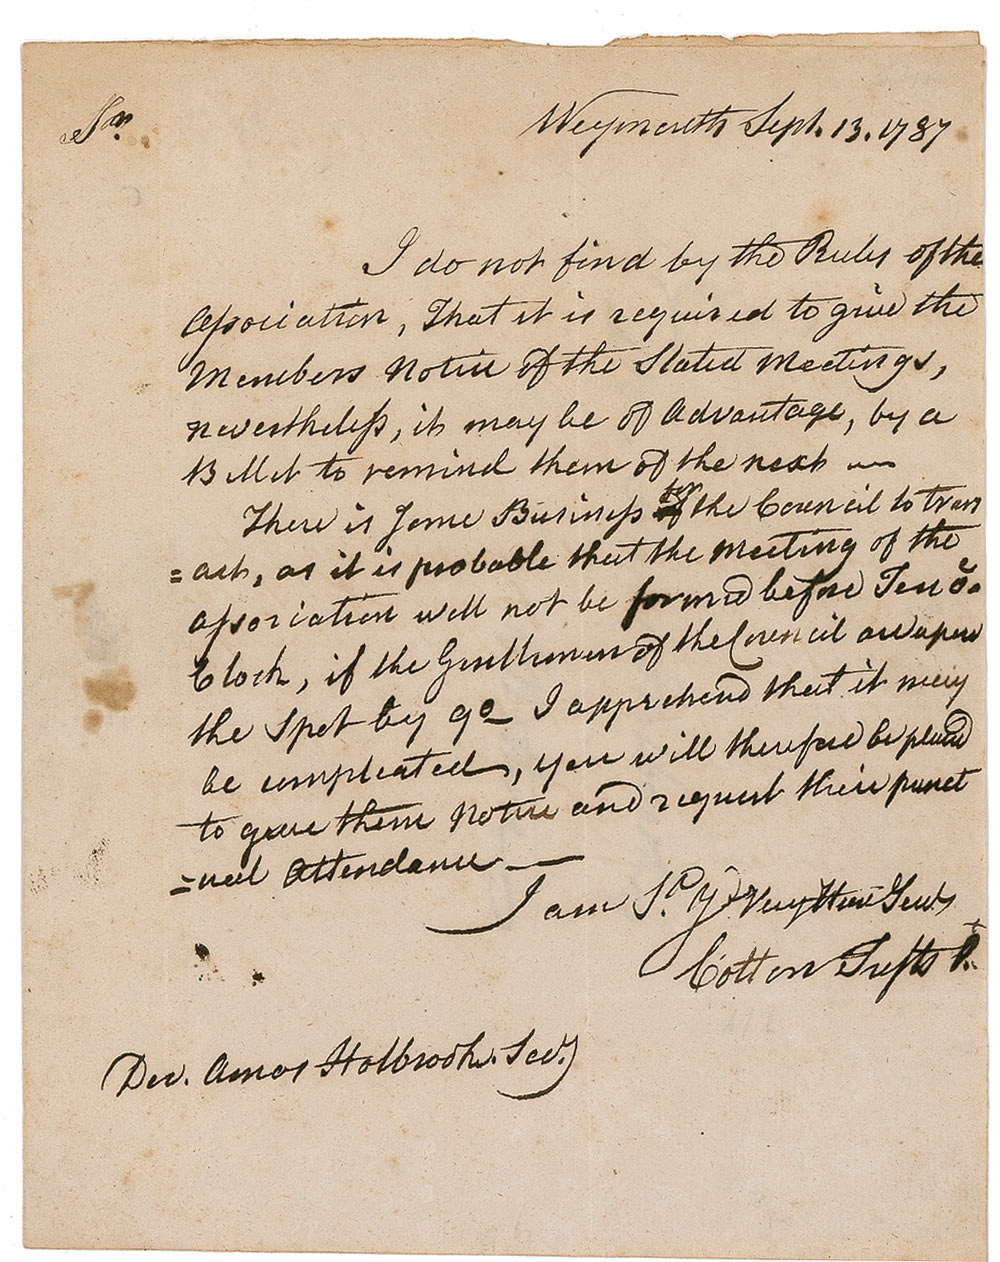 Sr.
Weymouth Sept. 13. 1787
I do not find by the Rules of the
Association, That it is required to give the
Members Notice of the Stated Meetings,
nevertheless, it may be of Advantage, by a
Billet to remind them of the next —
There is some Business for the Council to trans
=act, as it is probable that the Meeting of the
Association will not be formed before Ten O
Clock, if the Gentlemen of the Council are upon
the Spot by 9o I apprehend that it may
be compleated, you will therefore be pleased
to give them Notice and request their punct
=ual Attendance —
I am Sr. Yr Very Hum Servt
Cotton Tufts Pt.
Doc. Amos Holbrook. Secy.